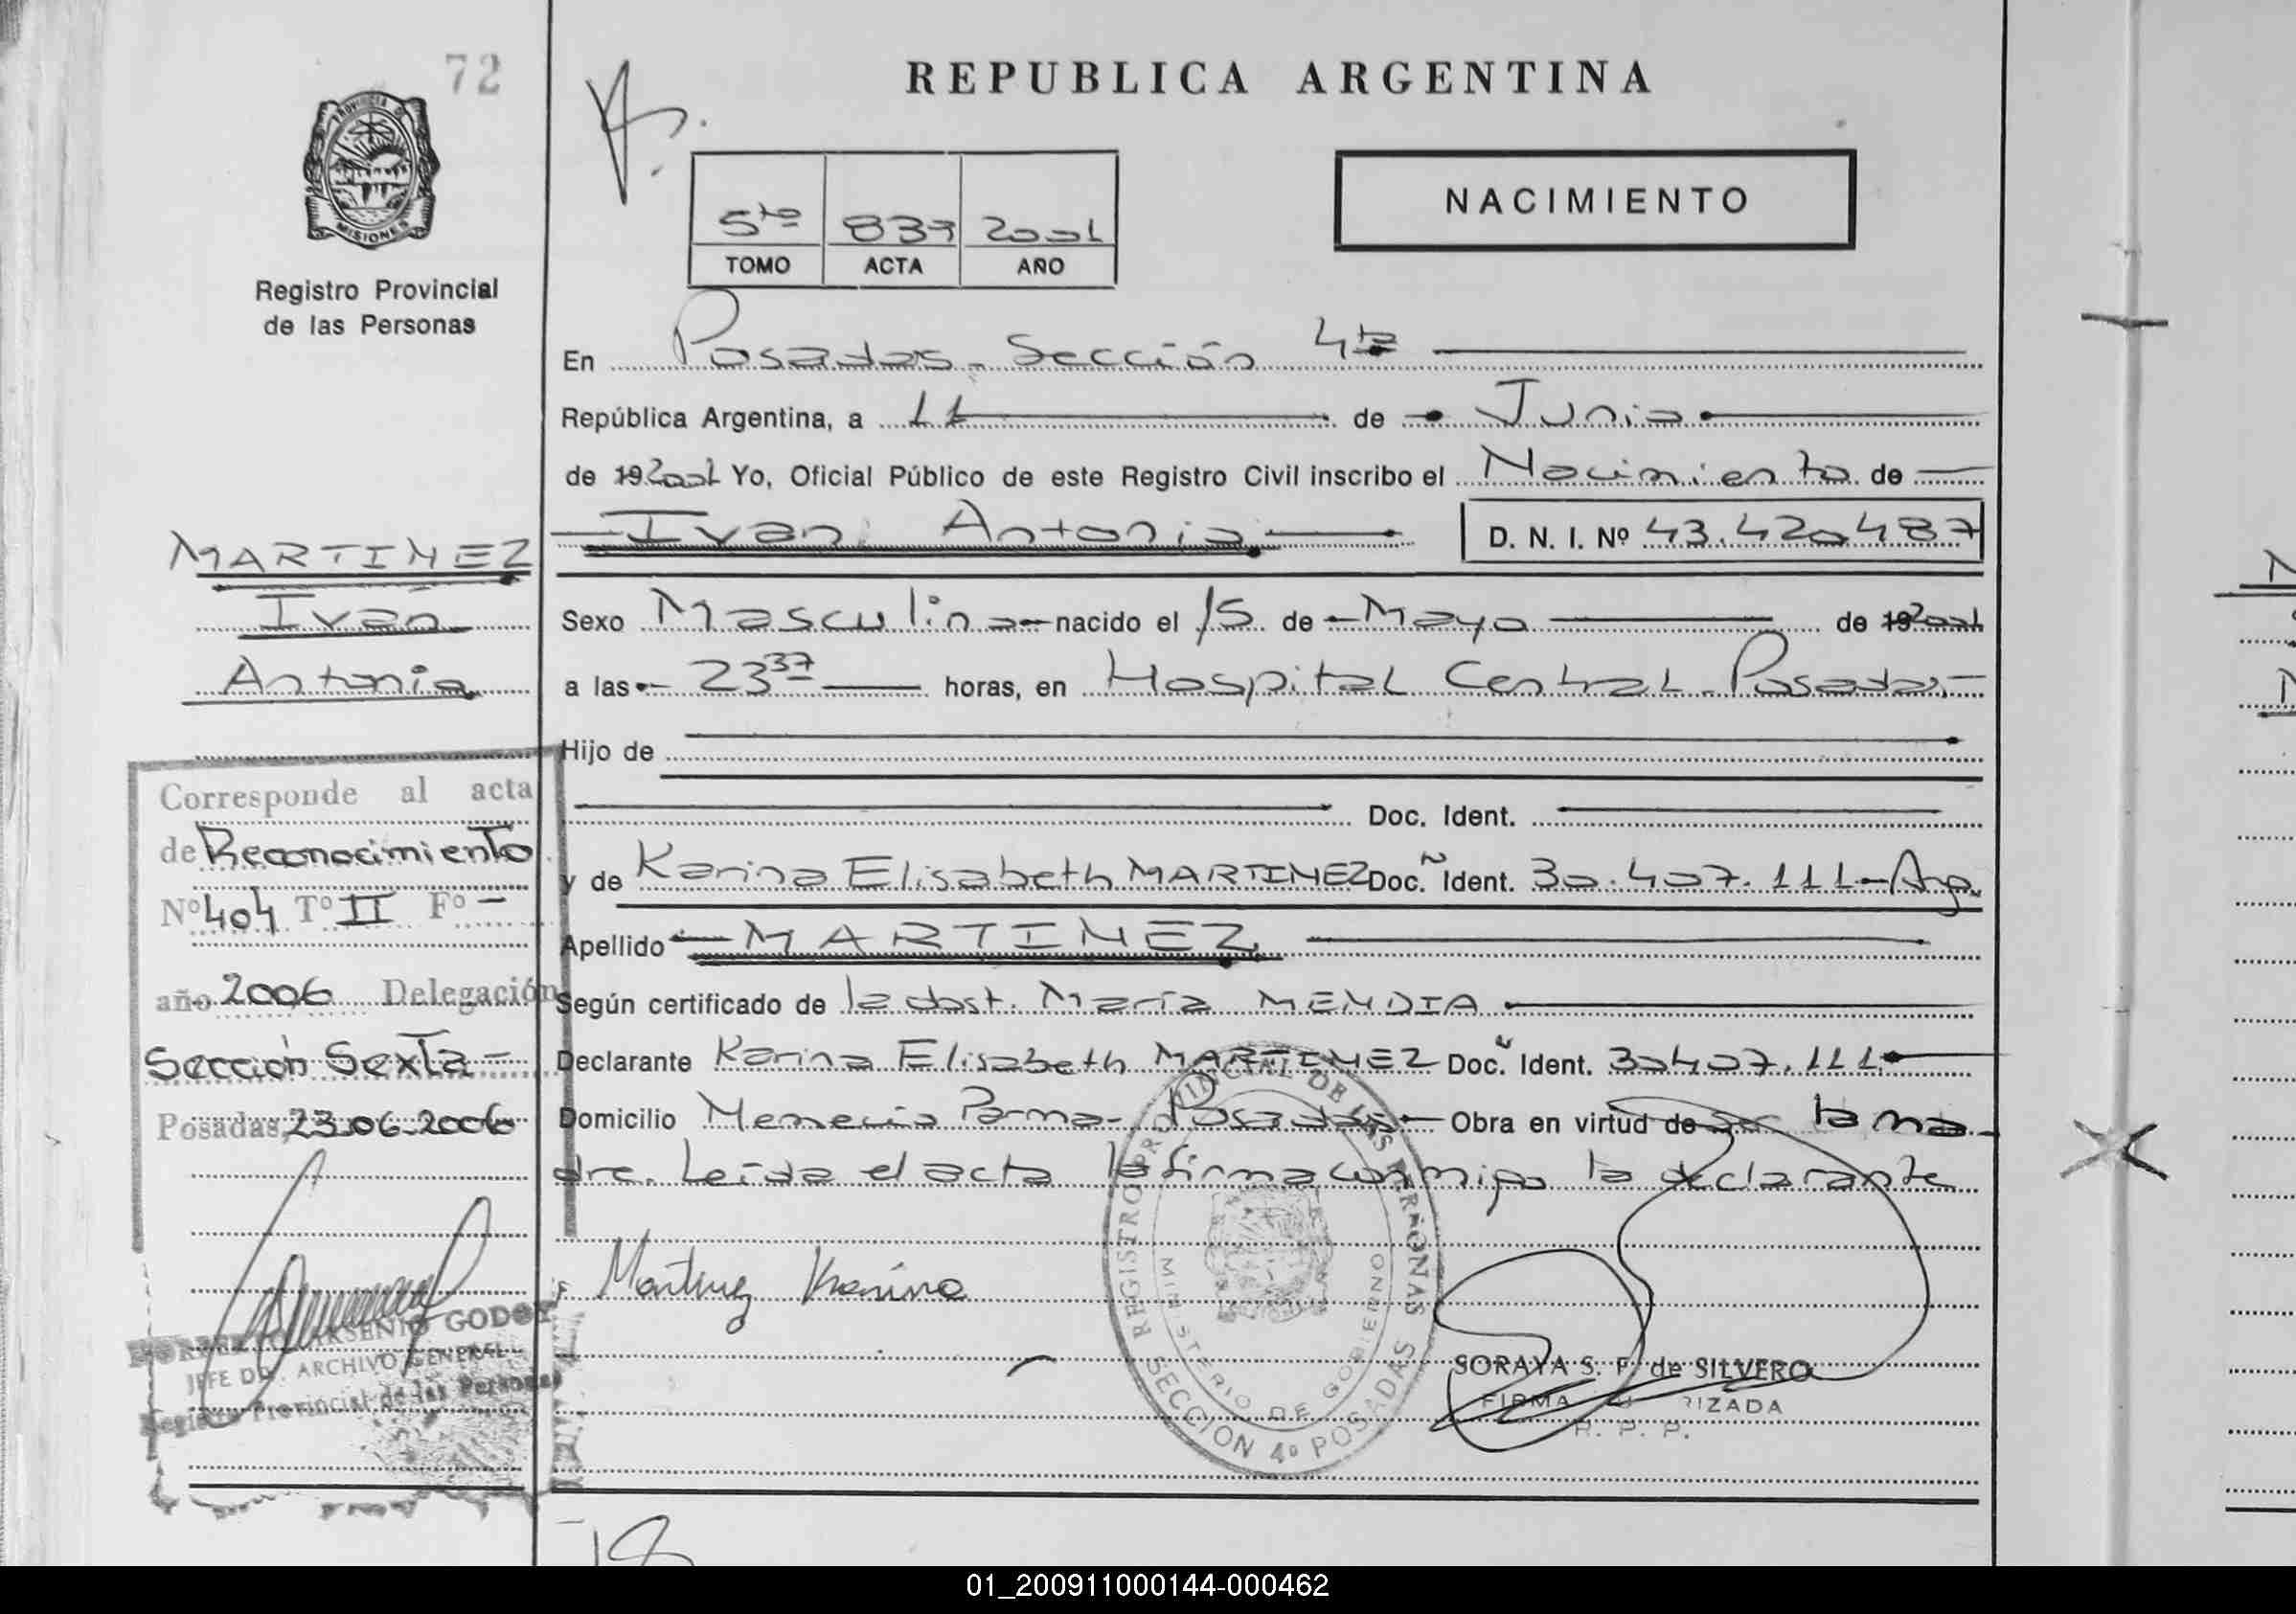 72
REPUBLICA ARGENTINA
PROVINCIA D
MISIONES
Registro Provincial
de las Personas
5to 839 2001
TOMO ACTA AÑO
NACIMIENTO
En Posadas - Sección 4ta
República Argentina, a 11 de Junio
de 19 2001 Yo, Oficial Público de este Registro Civil inscribo el Nacimiento de
Ivan Antonio D. N. I. Nº 43.420487
MARTINEZ
Iván
Antonio
Sexo Masculino nacido el 15 de Mayo de 19 2001
a las 23 37 horas, en Hospital Central Posadas
Hijo de
Doc. Ident.
y de Karina Elisabeth MARTINEZ Doc. Ident. 30.407.111 - Arg.
Apellido MARTINEZ
Según certificado de la obst. María MENDIA
Declarante Karina Elisabeth MARTINEZ Doc. Ident. 30407.111
Domicilio Posadas Obra en virtud de la ma
dre. Leída el acta la firma conmigo la declarante
Corresponde al acta
de Reconocimiento
Nº 404 Tº II Fº -
año 2006 Delegación
Sección Sexta -
Posadas, 23.06.2006
Martinez Karina
ARSENIO GODOY
JEFE DP. ARCHIVO GENERAL
Registro Provincial de las Personas
REGISTRO PROVINCIAL DE LAS PERSONAS
MINISTERIO DE GOBIERNO
SECCION 4º POSADAS
SORAYA S. F. de SILVERO
FIRMA RIZADA
R. P. P.
18
01_200911000144-000462